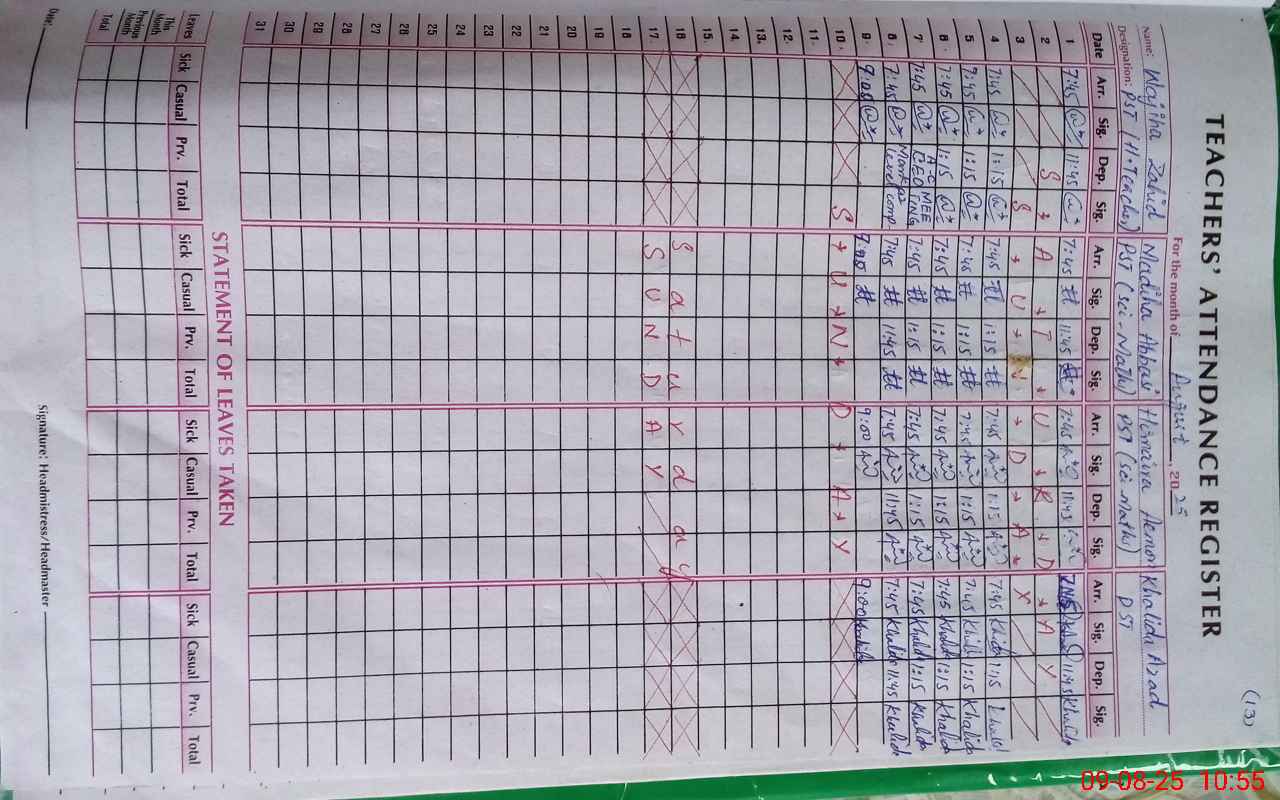 (13)
TEACHERS' ATTENDANCE REGISTER
For the month of August, 2025
Name: Wajiha Zahid Madiha Abbasi Humaira Aemon Khalida Azad
Designation: PST (H.Teacher) PST (Sci-Math) PST (Sci-Math) PST
Date Arr. Sig. Dep. Sig. Arr. Sig. Dep. Sig. Arr. Sig. Dep. Sig. Arr. Sig. Dep. Sig.
1 7:45 11:45 7:45 11:45 7:45 11:45 7:45 11:45 Khalida
2 S A T U R D A Y
3 S U N D A Y
4 7:45 1:15 7:45 1:15 7:45 1:15 7:45 Khalida 1:15 Khalida
5 7:45 1:15 7:45 1:15 7:45 1:15 7:45 Khalida 1:15 Khalida
6. 7:45 1:15 7:45 1:15 7:45 1:15 7:45 Khalida 1:15 Khalida
7. 7:45 A.C MEE CEO TING 7:45 1:15 7:45 1:15 7:45 Khalida 1:15 Khalida
8. 7:45 Markaz level comp. 7:45 11:45 7:45 11:45 7:45 Khalida 11:45 Khalida
9. 9:00 9:00 9:00 Khalida
10. S U N D A Y
11.
12.
13.
14.
15.
16 S a t u r d a y
17. S U N D A Y
18
19
20
21
22
23
24
25
26
27
28
29
30
31
STATEMENT OF LEAVES TAKEN
Leaves Sick Casual Prv. Total Sick Casual Prv. Total Sick Casual Prv. Total Sick Casual Prv. Total
This Month
Previous Month
Total
Date: Signature: Headmistress/Headmaster
09-08-25 10:55